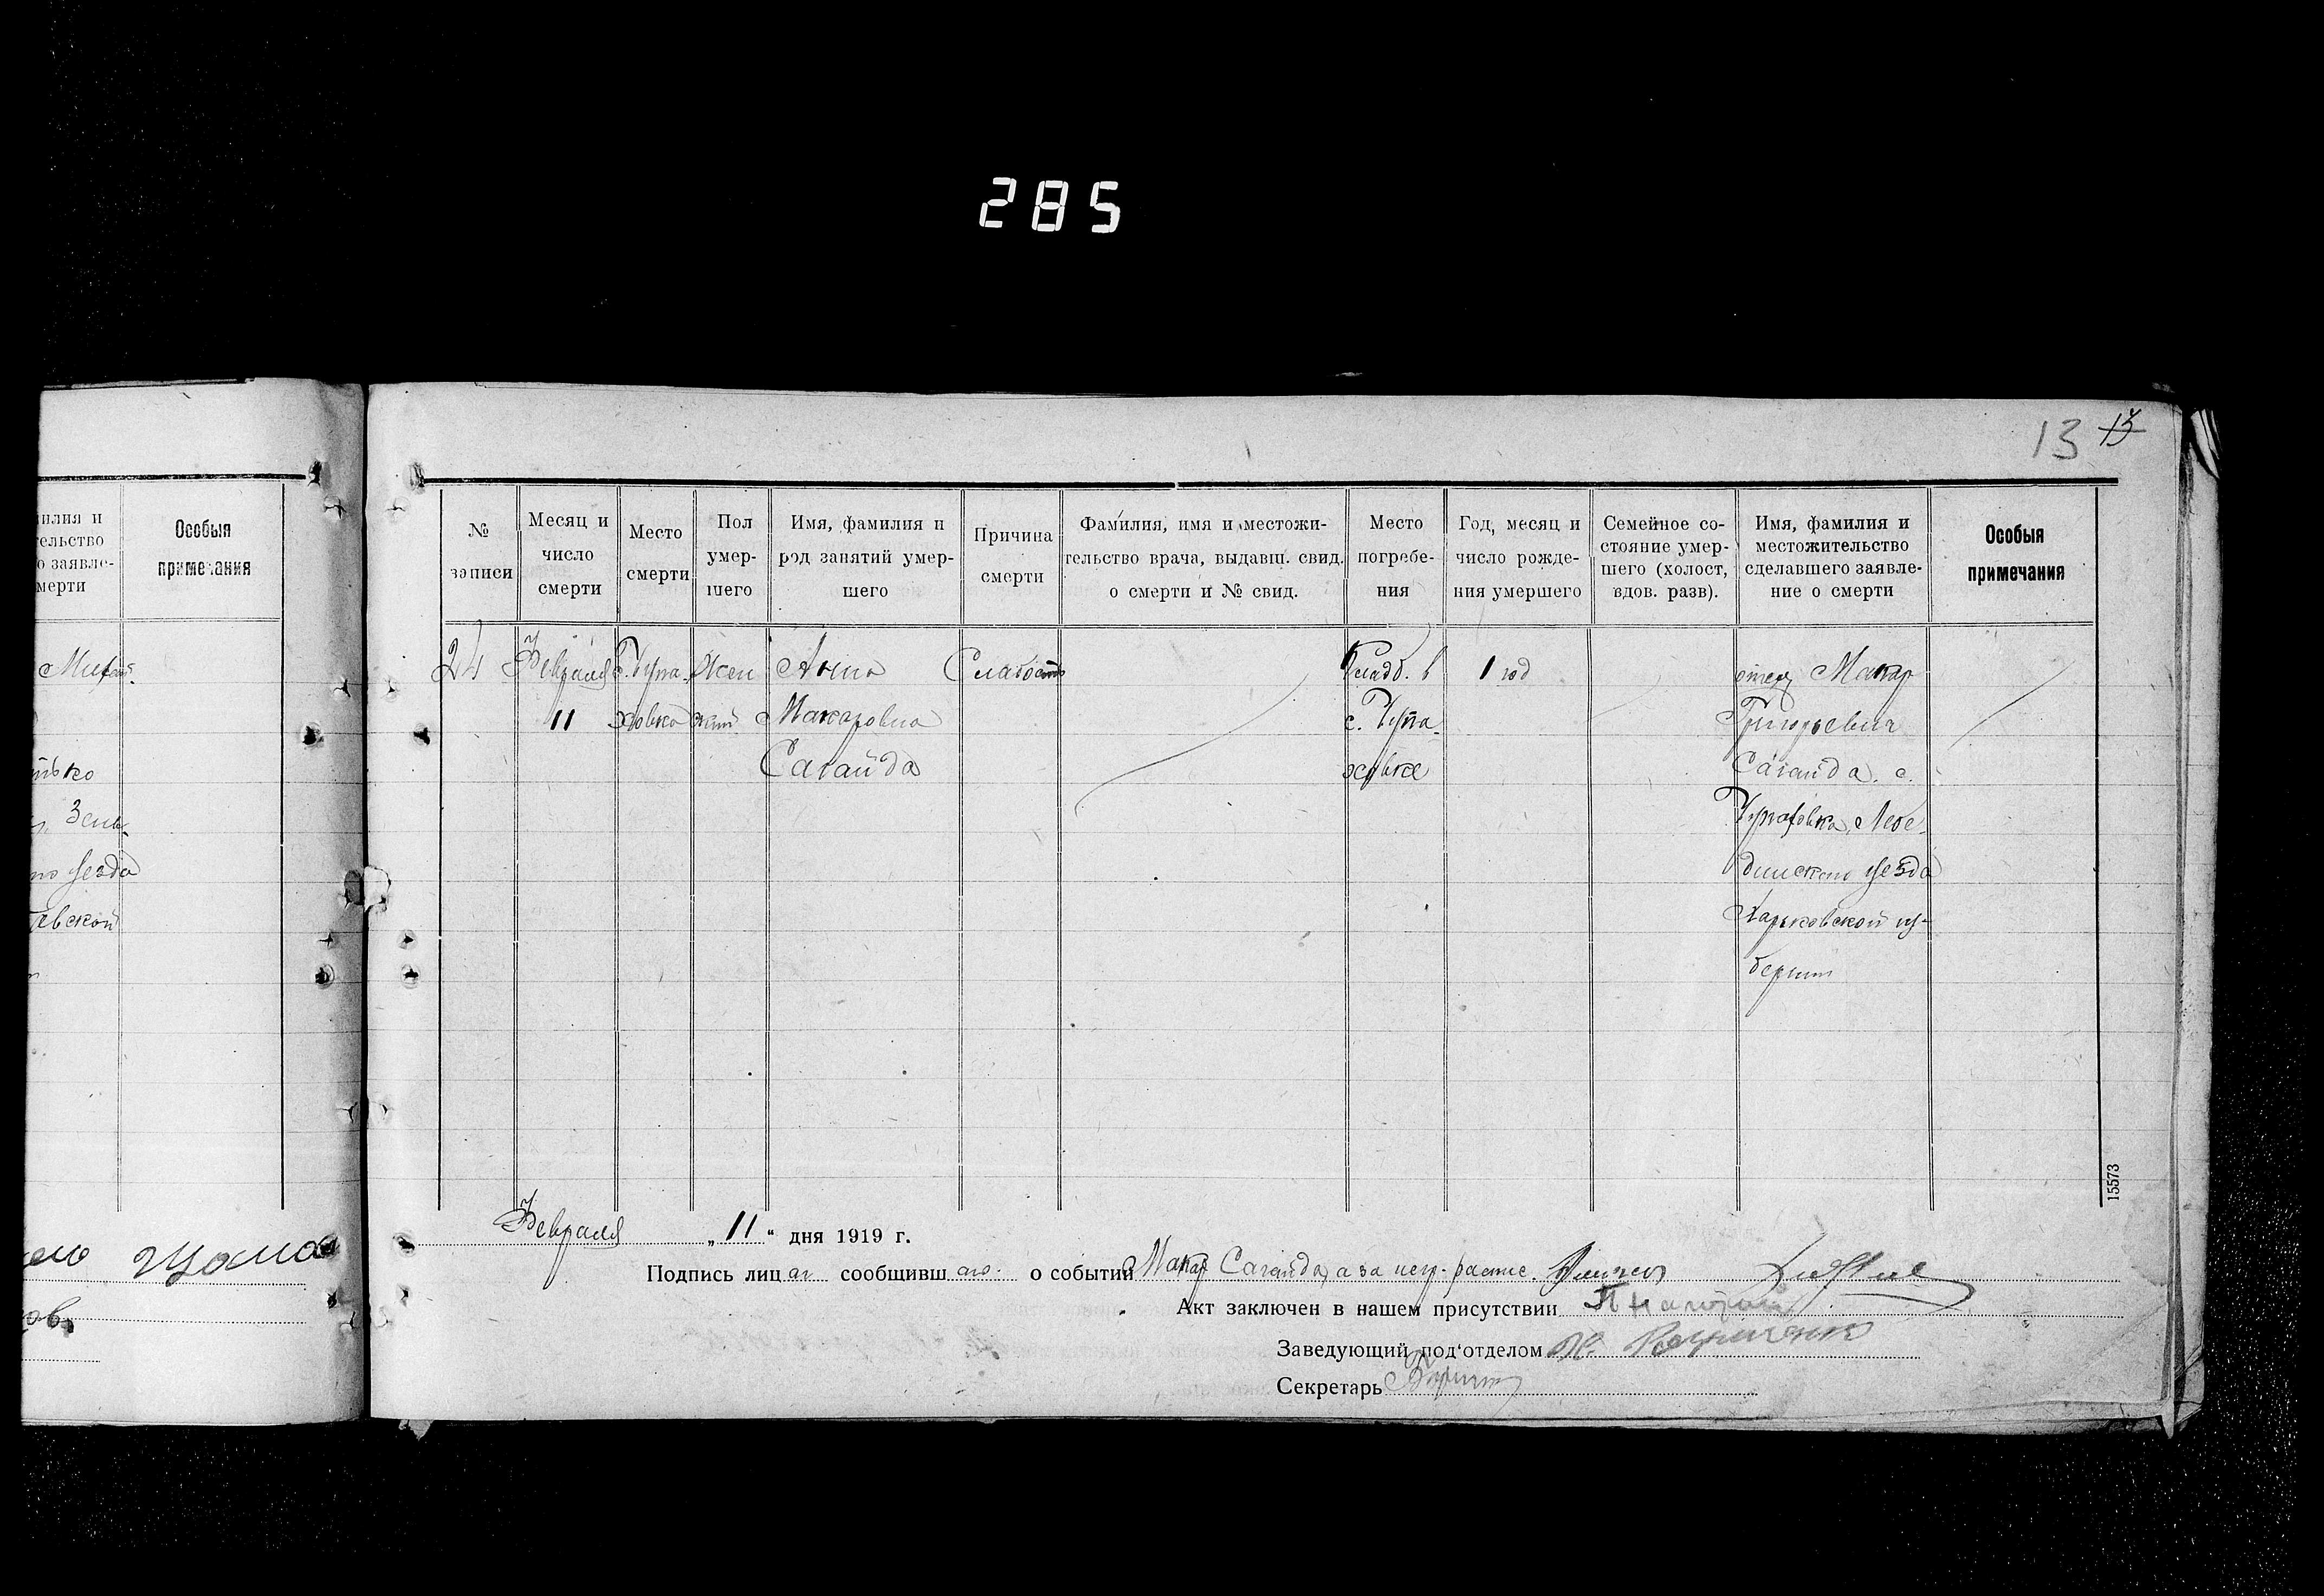 285
13 13
илия и
ельство
о заявле-
мерти
Особыя
примечания
зень.
уезда
евской
№
записи
Месяц и
число
смерти
Место
смерти
Пол
умер-
шего
Имя, фамилия и
род занятий умер-
шего
Причина
смерти
Фамилия, имя и местожи-
тельство врача, выдавш. свид.
о смерти и № свид.
Место
погребе-
ния
Год, месяц и
число рожде-
ния умершего
Семейное со-
стояние умер-
шего (холост,
вдов. разв).
Имя, фамилия и
местожительство
сделавшего заявле-
ние о смерти
Особыя
примечания
24
Февраля
11
Жен
ский
Анна
Макаровна
Сагайда
Слабость
Кладб. в
1 год
отец Макар
Григорьевич
Сагайда. с.
Лебе-
динского уезда
Харьковской гу-
бернии
15573
Февраля „11“ дня 1919 г.
Подпись лица сообщивш аго о событии Макар Сагайда, а за негр.
Акт заключен в нашем присутствии
Заведующий под'отделом
Секретарь